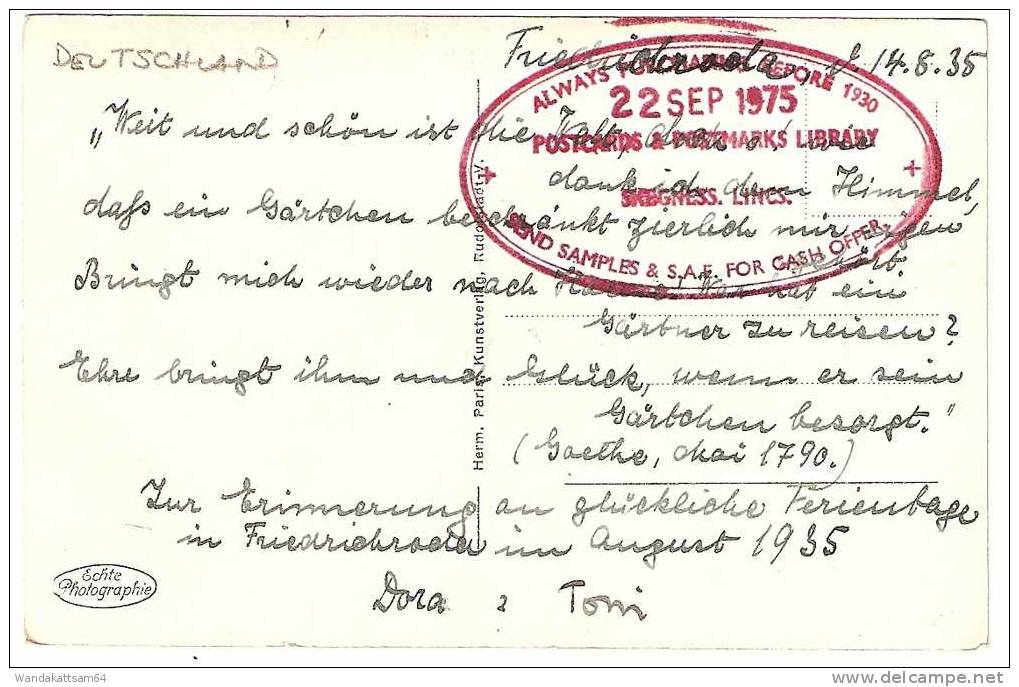 DEUTSCHLAND
Friedrichroda, d. 14.8.35
ALWAYS PURCHASING BEFORE 1930
22 SEP 1975
POSTCARDS & POSTMARKS LIBRARY
SKEGNESS. LINCS.
SEND SAMPLES & S.A.E. FOR CASH OFFER
„Weit und schön ist die Welt, doch o! wie
dank ich dem Himmel,
daß ein Gärtchen beschränkt zierlich mir eigen
gehört.
Bringt mich wieder nach Hause! Was hat ein
Gärtner zu reisen?
Ehre bringt ihm und Glück, wenn er sein
Gärtchen besorgt."
(Goethe, Mai 1790.)
Zur Erinnerung an glückliche Ferientage
in Friedrichroda im August 1935
Dora Toni
Herm. Paris, Kunstverlag, Rudolstadt-V.
Echte
Photographie
Wandakattsam64
www.delcampe.net